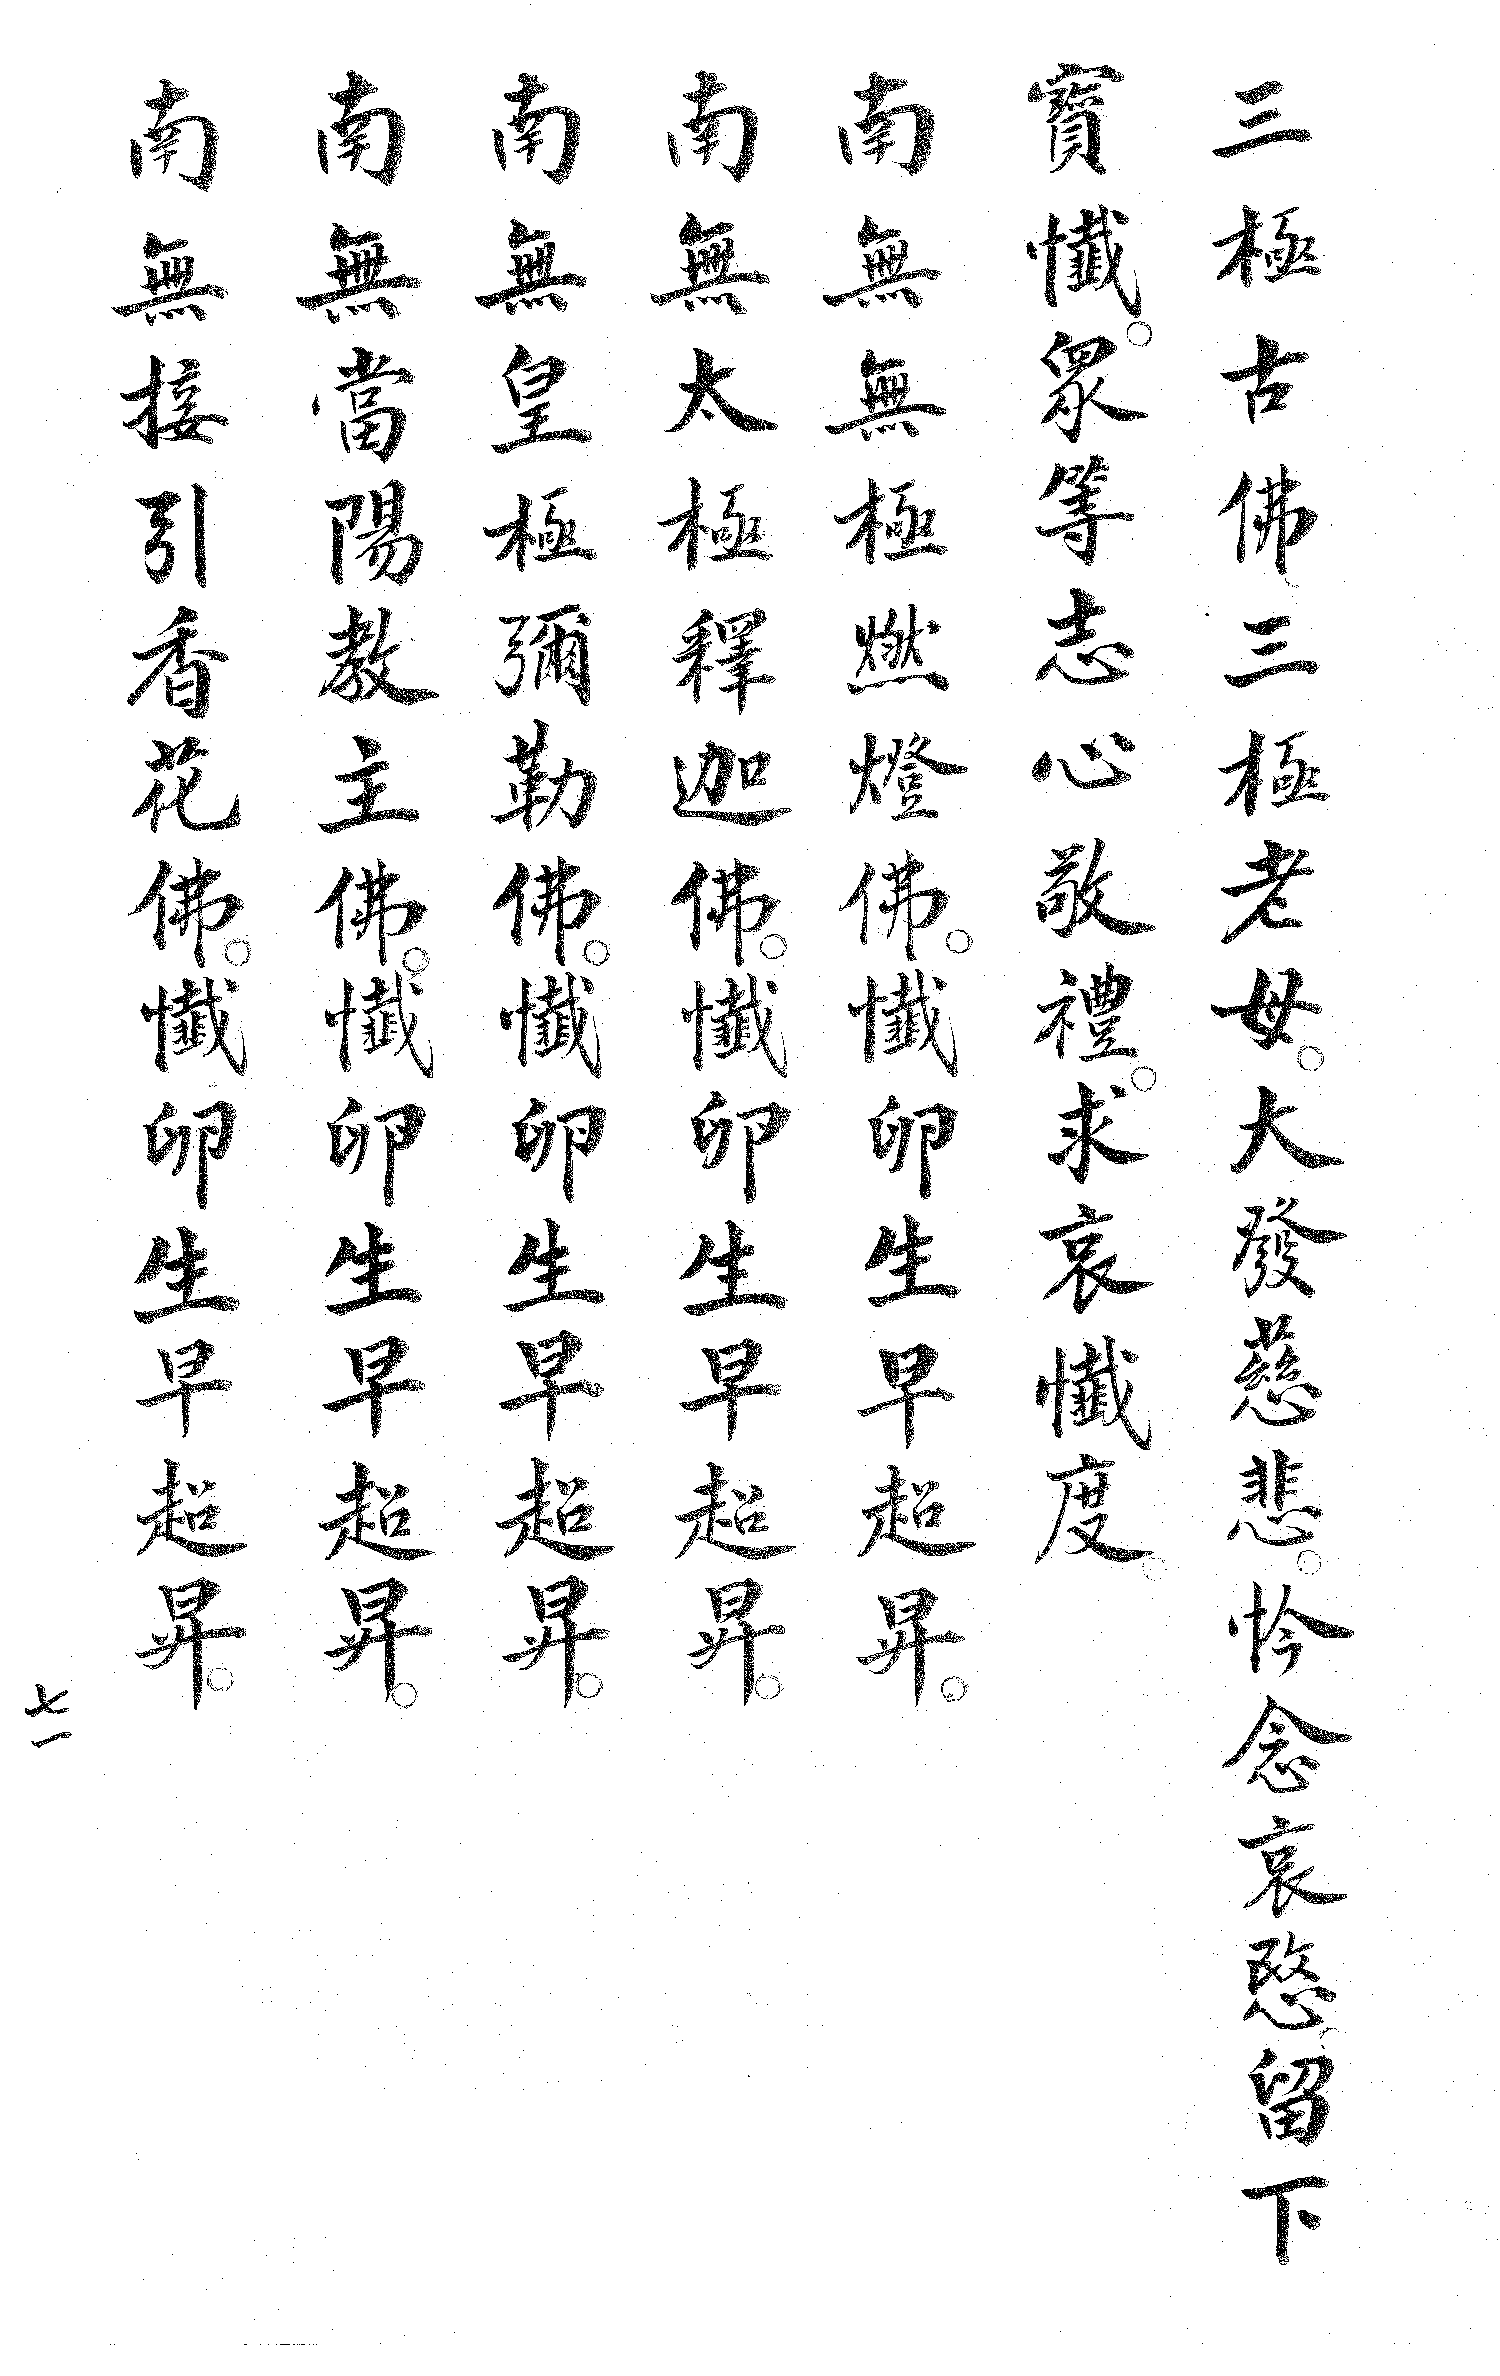 三極古佛三極老母。大發慈悲。怜念哀愍。留下
寶懺。眾等志心敬禮。求哀懺度。
南無無極燃燈佛。懺卯生早超昇。
南無太極釋迦佛。懺卯生早超昇。
南無皇極彌勒佛。懺卯生早超昇。
南無當陽教主佛。懺卯生早超昇。
南無接引香花佛。懺卯生早超昇。
七一